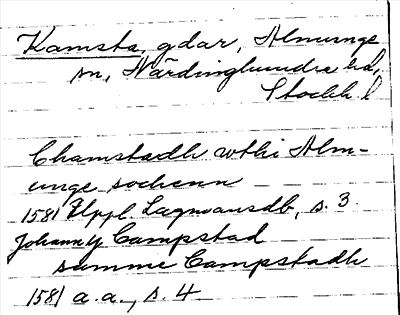 Kamsta, gdar, Almunge
sn, Närdinghundra hd,
Stockh. l
Chamstadh wthi Alm-
unge sochenn
1581 Uppl. Lagmansdb, s. 3.
Johann y Campstad
samme Campstadh
1581 a.a., s. 4